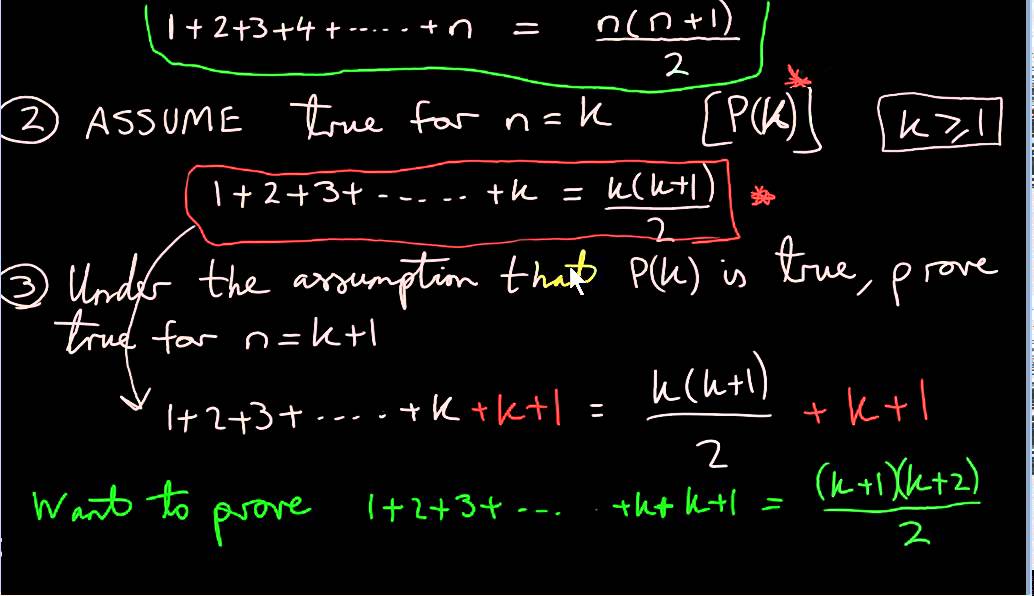 1+2+3+4+.....+n = n(n+1)/2
② ASSUME true for n=k [P(k)]* k⩾1
1+2+3+.....+k = k(k+1)/2 *
③ Under the assumption that P(k) is true, prove
true for n=k+1
1+2+3+.....+k+k+1 = k(k+1)/2 +k+1
Want to prove 1+2+3+.... +k+k+1 = (k+1)(k+2)/2